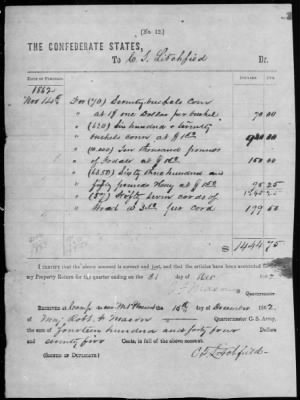 [No. 12.]
THE CONFEDERATE STATES,
To C. S. Litchfield Dr.
DATE OF PURCHASE. DOLLARS CTS.
1862
Nov 14th For (70) Seventy bushels Corn
at 1$ one Dollar per bushel 70.00
" (620) Six hundred & twenty
bushels corn at
" (10.000) Ten thousand pounds
of Fodder at 150.00
" (6350) Sixty three hundred and
fifty pounds Hay at 95.25
" (57) Fifty Seven cords of
Wood at per cord 179.50
$ 1444.75
I CERTIFY that the above account is correct and just, and that the articles have been accounted for
my Property Return for the quarter ending on the 31 of Dec 1862
Mason
Quartermaster
RECEIVED at Camp near the 14th of December 1862,
of Maj Robt. F. Mason Quartermaster C. S. Army,
the sum of Fourteen hundred and forty four Dollars
and Seventy five Cents, in full of the above account.
(SIGNED IN DUPLICATE)
C. S. Litchfield